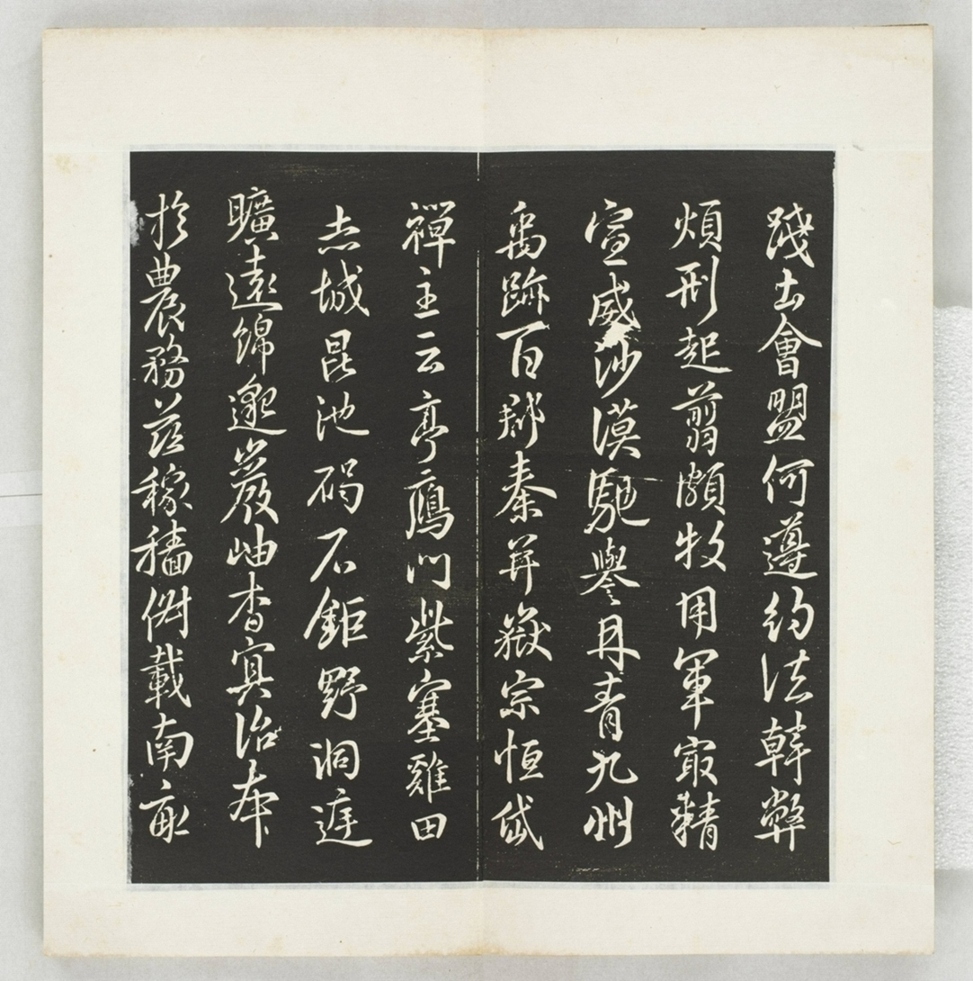 踐土會盟何遵約法韓弊
煩刑起翦頗牧用軍最精
宣威沙漠馳譽丹青九州
禹跡百郡秦并嶽宗恒岱
禪主云亭鴈門紫塞雞田
赤城昆池碣石鉅野洞庭
曠遠綿邈巖岫杳冥治本
於農務茲稼穡俶載南畝